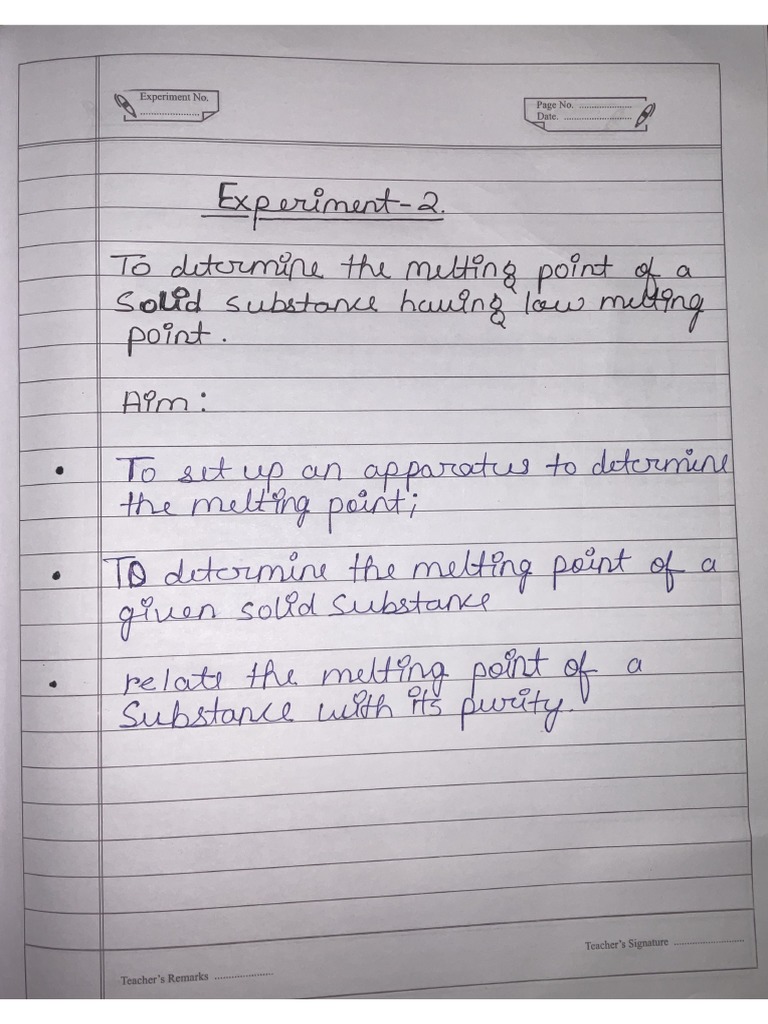 Experiment No.
....................
Page No. ....................
Date. ..........................
Experiment-2.
To determine the melting point of a
solid substance having low melting
point.
Aim:
• To set up an apparatus to determine
the melting point;
• To determine the melting point of a
given solid substance
• relate the melting point of a
Substance with its purity.
Teacher's Signature ..........................
Teacher's Remarks ......................